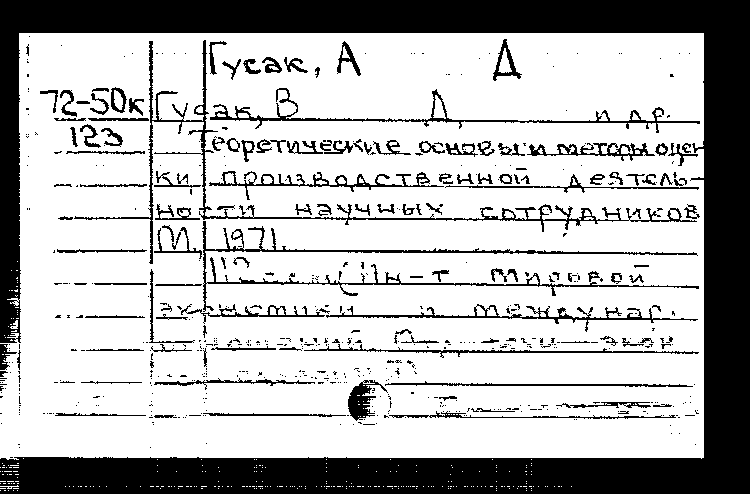 Гусак, А Д
72-50к Гусак, В Д. и др.
123 Теоретические основы и методы оцен
ки производственной деятель-
ности научных сотрудников
М., 1971.
112 (Ин-т мировой
экономики и междунар.
отношений